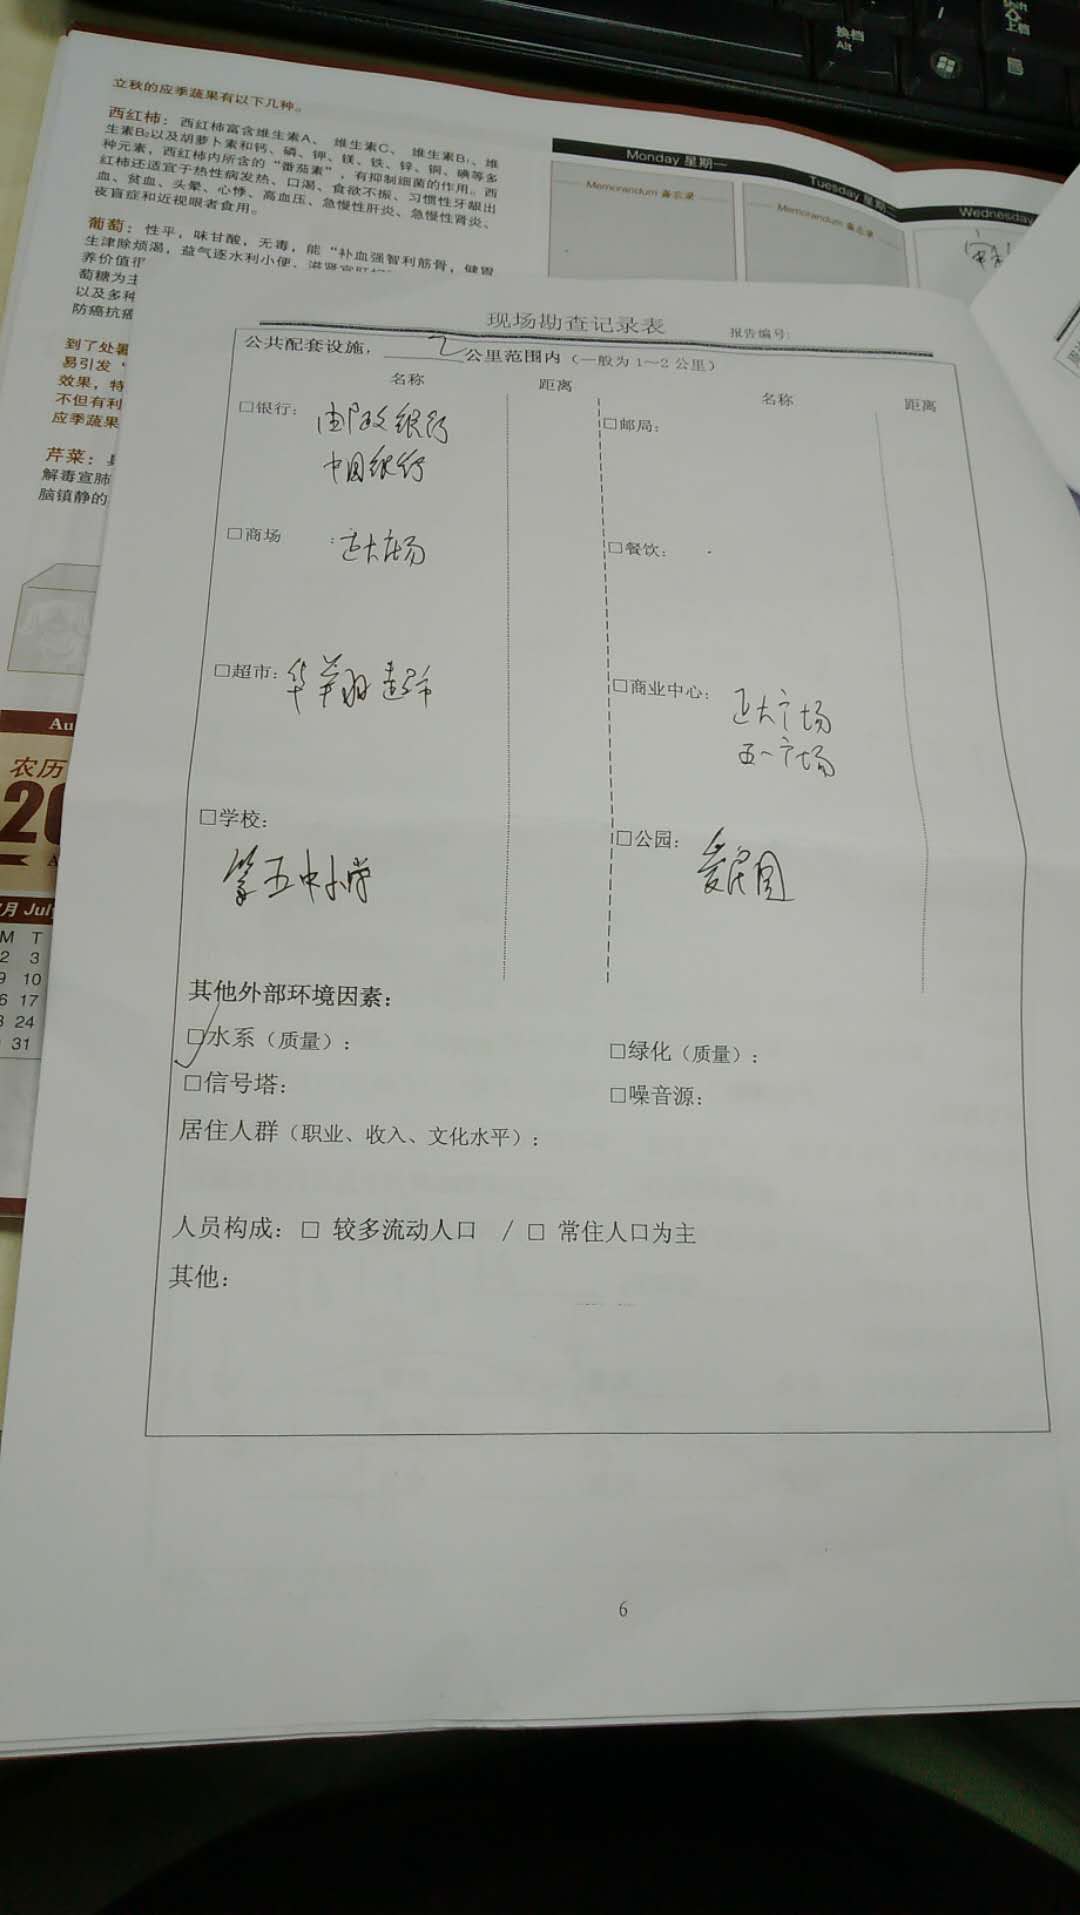 换档
Alt
Shift
上档
立秋的应季蔬果有以下几种。
西红柿：西红柿富含维生素A、维生素C、维生素B₁、维
生素B₂以及胡萝卜素和钙、磷、钾、镁、铁、锌、铜、碘等多
种元素，西红柿内所含的“番茄素”，有抑制细菌的作用。西
红柿还适宜于热性病发热、口渴、食欲不振、习惯性牙龈出
血、贫血、头晕、心悸、高血压、急慢性肝炎、急慢性肾炎、
夜盲症和近视眼者食用。
葡萄：性平，味甘酸，无毒，能“补血强智利筋骨，健胃
生津除烦渴，益气逐水利小便，滋肾宜肝
养价值很
萄糖为主
以及多种
防癌抗癌
到了处暑
易引发“
效果，特
不但有利
应季蔬果
芹菜：
解毒宣肺
脑镇静的
Monday 星期一
Memorandum 备忘录
Tuesday 星期二
Memorandum 备忘录
Wednesday
现场勘查记录表
报告编号：
公共配套设施，2公里范围内（一般为1～2公里）
名称 距离 名称 距离
□银行：邮政银行
中国银行
□邮局：
□商场：正大广场
□餐饮：
□超市：华翔超市
□商业中心：正大广场
五一广场
□学校：
第五中小学
□公园：爱民园
其他外部环境因素：
□水系（质量）： □绿化（质量）：
□信号塔： □噪音源：
居住人群（职业、收入、文化水平）：
人员构成：□ 较多流动人口 / □ 常住人口为主
其他：
6
Au
农历
20
A
7月 July
M T
2 3
9 10
6 17
3 24
31